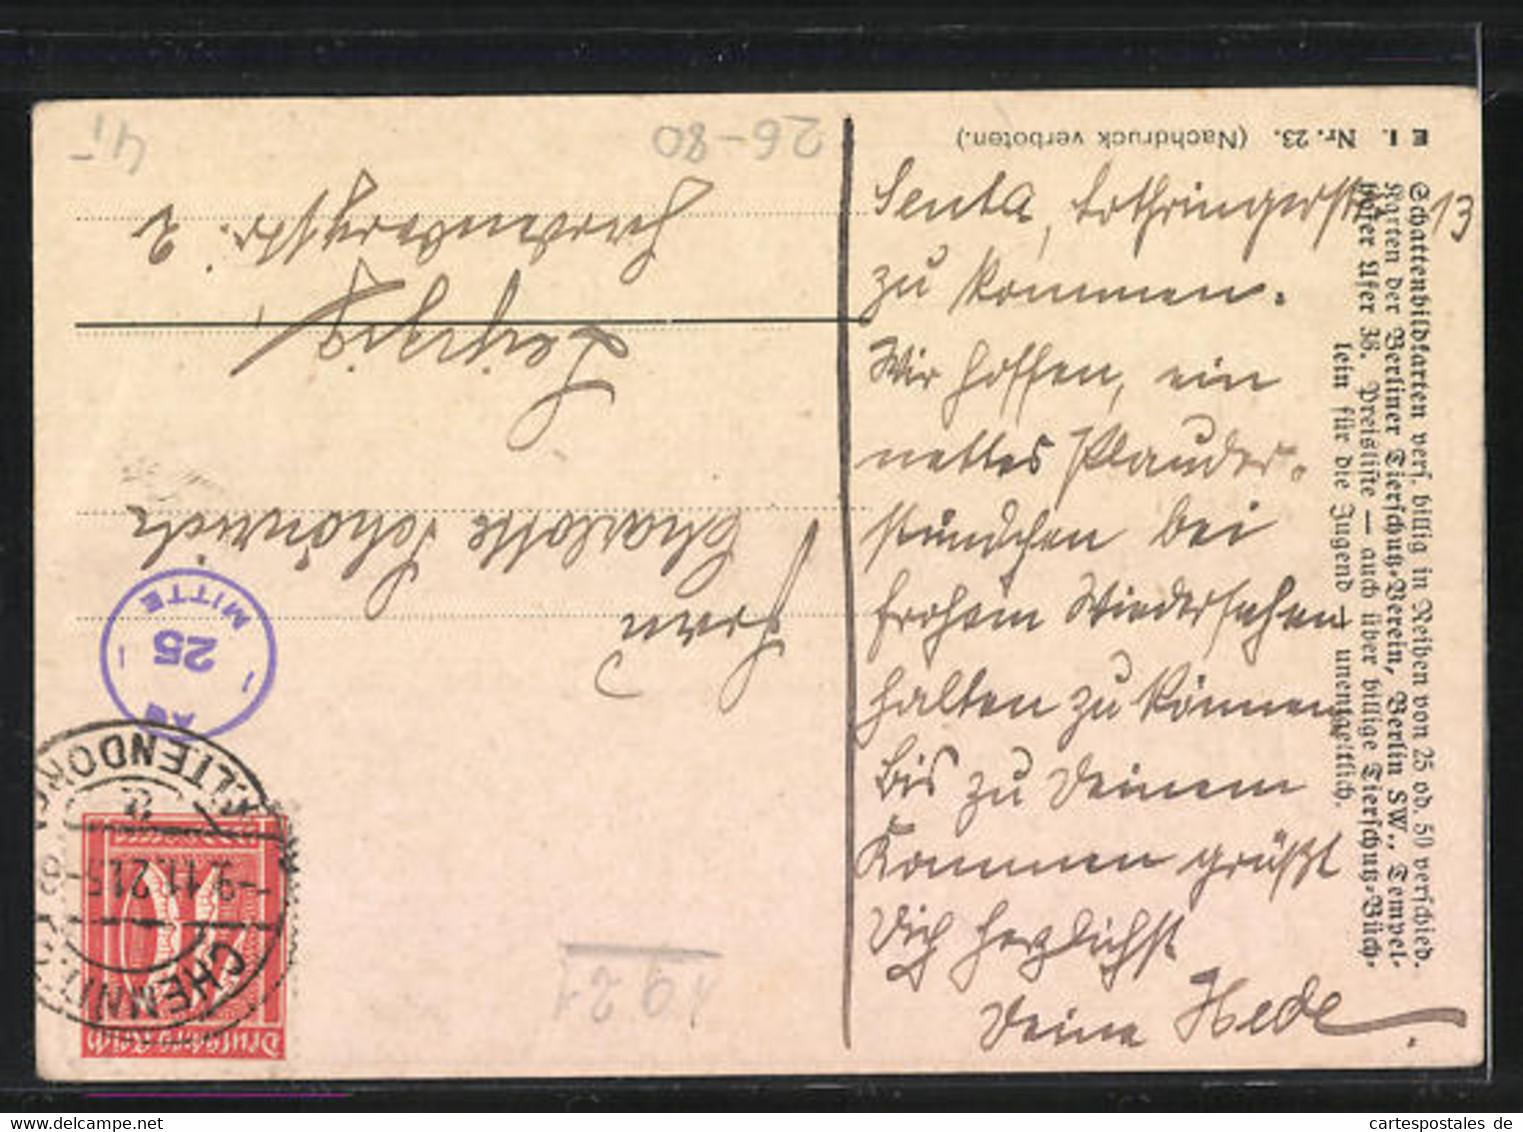 Senta, Lothringerstr. 13
zu kommen.
Wir hoffen, ein
nettes Plauder-
stündchen bei
frohem Wiedersehen
halten zu können
Bis zu Deinem
Kommen grüßt
Dich herzlichst
Deine Hede.
E I. Nr. 23. (Nachdruck verboten.)
Schattenbildkarten vers. billig in Reihen von 25 od. 50 verschied.
Karten der Berliner Tierschutz-Verein, Berlin SW., Tempel-
hofer Ufer 36. Preisliste — auch über billige Tierschutz-Büch-
lein für die Jugend — unentgeltlich.
Deutsches Reich
CHEMNITZ
-9.11.21.5-
ALTENDORF
25
MITTE
Charlotte Schönrich
Leipzig
Hardenbergstr. 2
1921
26-80
45